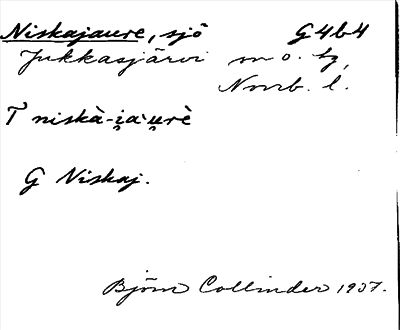 Niskajaure, sjö G4b4
Jukkasjärvi sn o. tg,
Norrb. l.
T niskà-i̯a·u̯rè
G Niskaj.
Björn Collinder 1937.